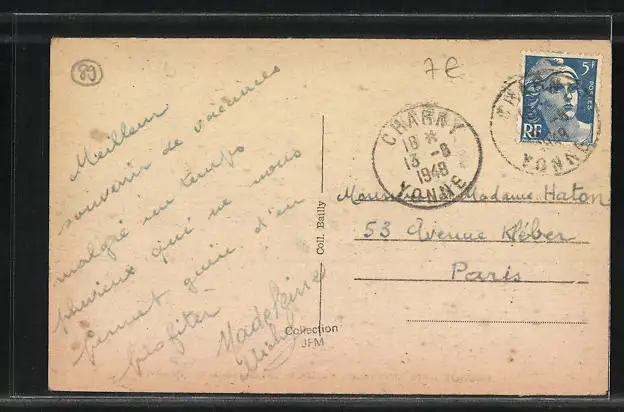 89
7€
Meilleur
souvenir de vacances
malgré un temps
pluvieux qui ne nous
permet guère d'en
profiter
Madeleine
Michel
Coll. Bailly
Collection
JFM
CHARNY
18 *
13 - 8
1948
YONNE
5F
POSTES
RF
CHARNY
1948
YONNE
Monsieur et Madame Haton
53 Avenue Kléber
Paris